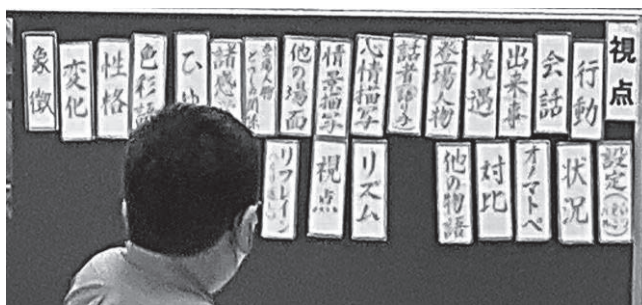 視点
行動
会話
出来事
境遇
登場人物
話者(語り手)
心情描写
情景描写
他の場面
諸感
色彩語
性格
変化
象徴
設定
状況
オノマトペ
対比
他の物語
リズム
視点
リフレイン